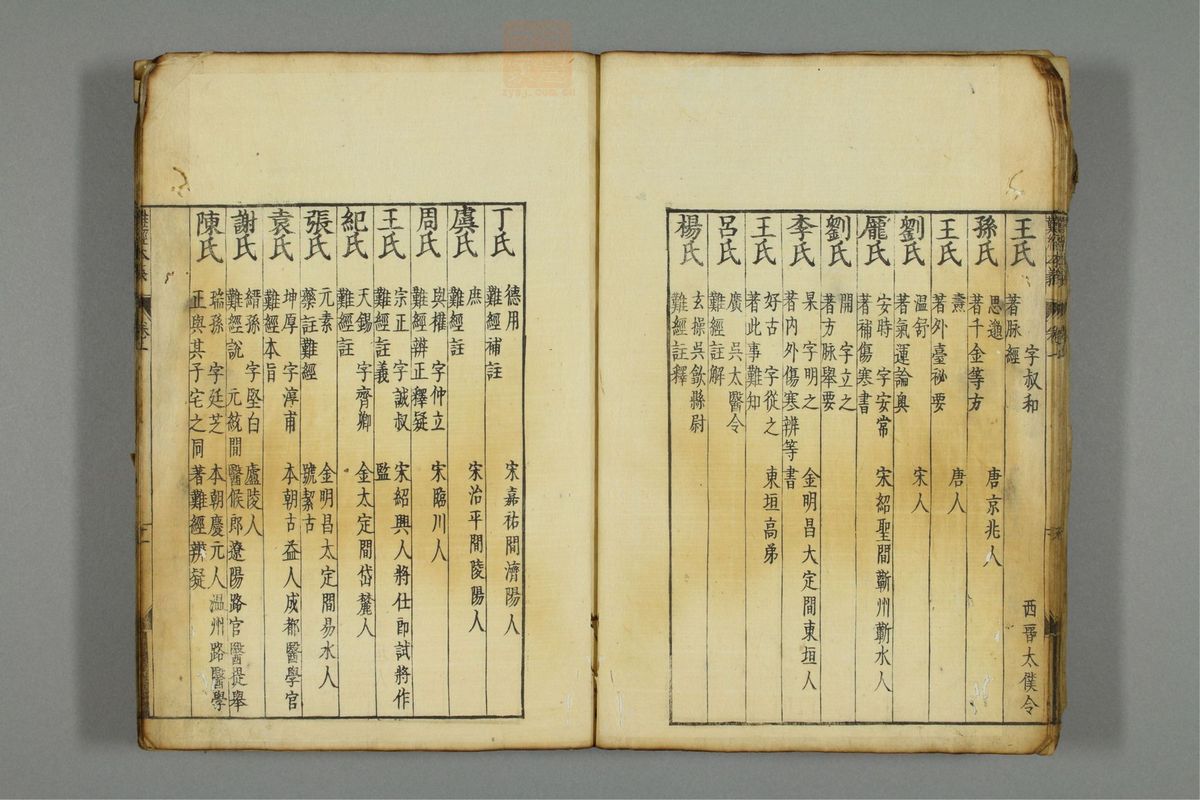 王氏 字叔和 西晉太僕令
著脉經
孫氏 思邈 唐京兆人
著千金等方
王氏 燾 唐人
著外臺祕要
劉氏 温舒 宋人
著氣運論奥
龐氏 安時 字安常 宋紹聖間蘄州蘄水人
著補傷寒書
劉氏 開 字立之
著方脉舉要
李氏 杲 字明之 金明昌大定間東垣人
著内外傷寒辨等書
王氏 好古 字從之 東垣高弟
著此事難知
呂氏 廣 吳太醫令
難經註解
楊氏 玄操 吳歙縣尉
難經註釋
丁氏 德用 宋嘉祐間濟陽人
難經補註
虞氏 庶 宋治平間陵陽人
難經註
周氏 與權 字仲立 宋臨川人
難經辨正釋疑
王氏 宗正 字誠叔 宋紹興人將仕郎試將作監
難經註義
紀氏 天錫 字齊卿 金太定間岱麓人
難經註
張氏 元素 金明昌太定間易水人
藥註難經 號潔古
袁氏 坤厚 字淳甫 本朝古益人成都醫學官
難經本旨
謝氏 縉孫 字堅白 廬陵人
難經說 元統間醫候郎遼陽路官醫提舉
陳氏 瑞孫 字廷芝 本朝慶元人温州路醫學
正與其子宅之同著難經辨疑
zysj.com.cn